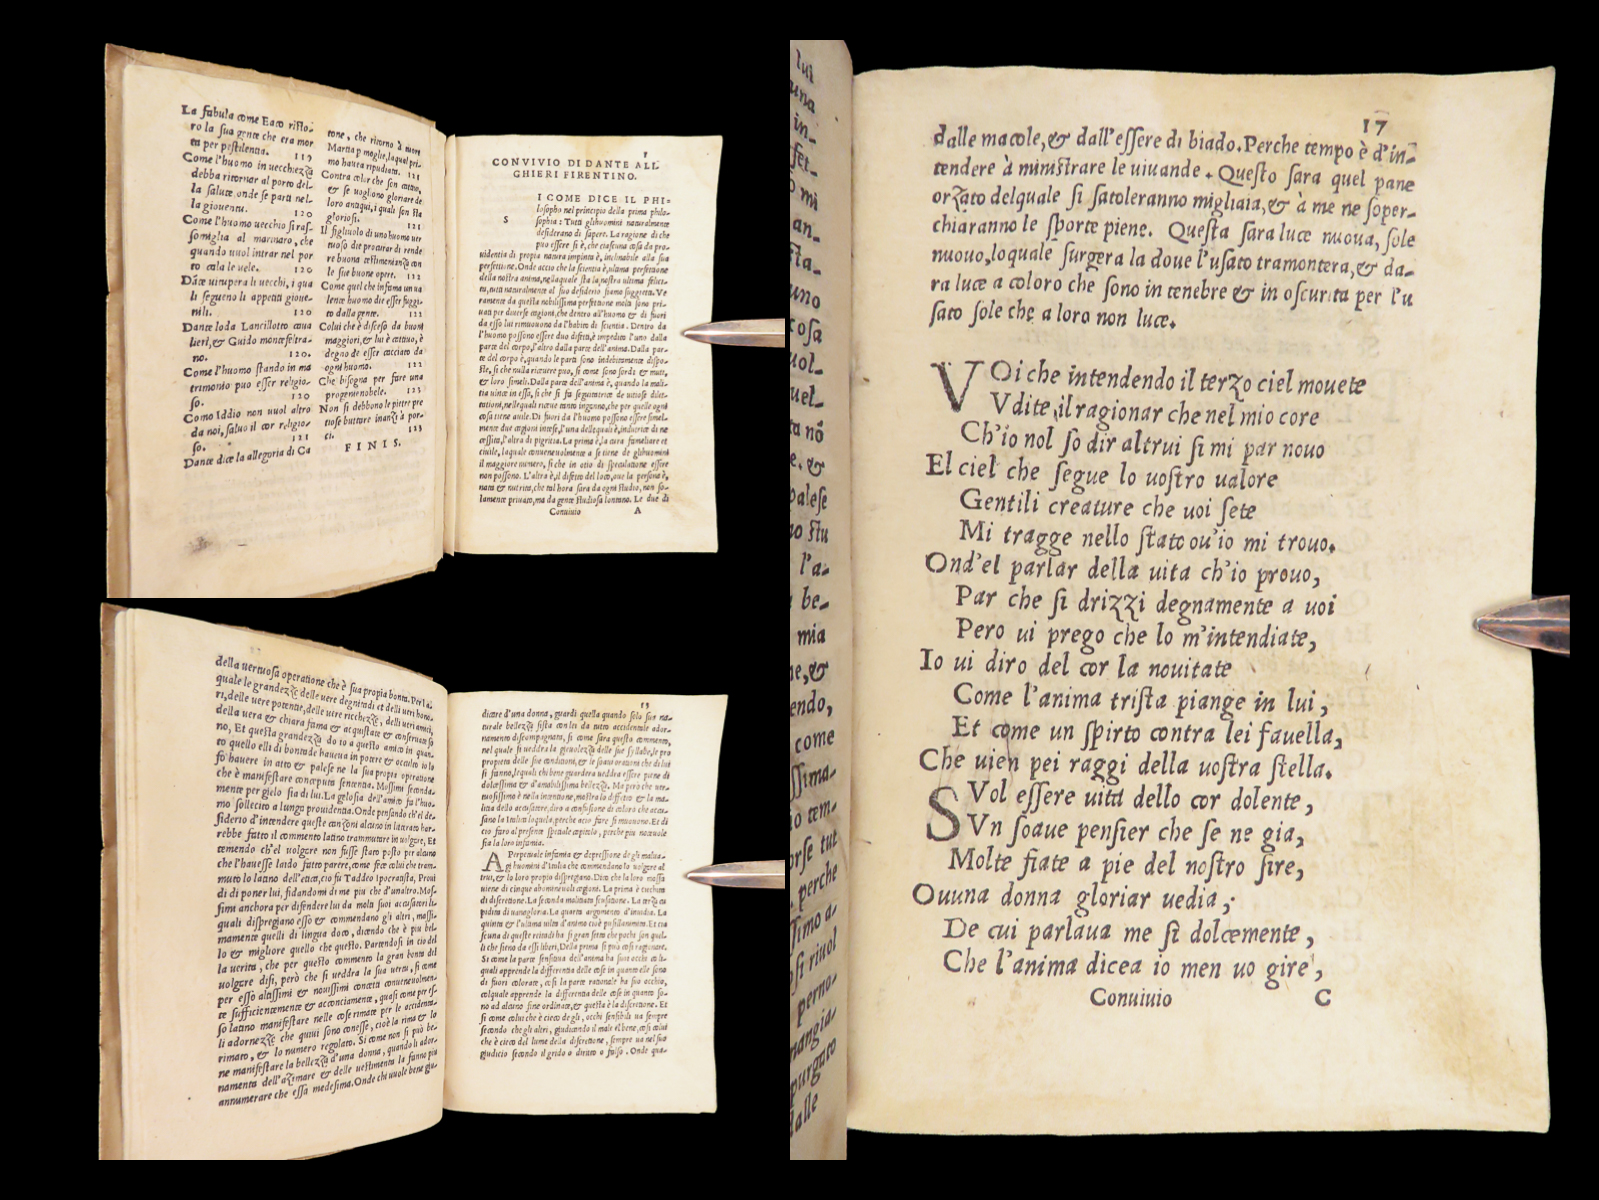 La fabula come Eaco risto-
ro la sua gente che era mor
ta per pestilentia. 119
Come l'huomo in uecchiezza
debba ritornar al porto del-
la salute onde se parti nel-
la giouentu. 120
Come l'huomo uecchio si ras-
somiglia al marinaro, che
quando uuol intrar nel por
to cala le uele. 120
Dāte uitupera li uecchi, i qua
li segueno li appetiti gioue-
nili. 120
Dante loda Lancillotto caua
lieri, & Guido montefeltra-
no. 120.
Come l'huomo stando in ma
trimonio puo esser religio-
so. 120
Como Iddio non uuol altro
da noi, saluo il cor religio-
so. 121
Dante dice la allegoria di Ca
tone, che ritorno à tuore
Martia p moglie, laqual pri-
mo hauea ripudiata. 121
Contra color che son cattiui,
& se uogliono gloriare de
loro antiqui, i quali son sta
gloriosi. 121
Il figliuolo di uno huomo uir
tuoso die procurar di rende
re buona testimonianza con
le sue buone opere. 122
Come quel che infama un ua
lente huomo die esser fuggi-
to dalla gente. 122
Colui che è disceso da buoni
maggiori, & lui è cattiuo, è
degno de esser cacciato da
ogni huomo. 122
Che bisogna per fare una
progenie nobele. 122
Non si debbono le pietre pre
tiose buttare inanzi à por-
ci. 123
FINIS.
1
CONVIVIO DI DANTE ALI-
GHIERI FIRENTINO.
S I COME DICE IL PHI-
losopho nel principio della prima phila-
sophia: Tutti gli huomini naturalmente
desiderano di sapere. La ragione di che
puo essere si è, che ciascuna cosa da pro-
uidentia di propia natura impinta è, inclinabile alla sua
perfettione. Onde accio che la scientia è, ultima perfettione
della nostra anima, ne laquale sta la nostra ultima felici-
tà, tutti naturalmente al suo desiderio siamo suggetti. Ve
ramente da questa nobilissima perfettione molti sono pri-
uati per diuerse cagioni, che dentro all'huomo & di fuori
da esso lui rimuouono da l'habito di scientia. Dentro da
l'huomo possono essere duo difetti, è impedito l'uno dalla
parte del corpo, l'altro dalla parte dell'anima. Dalla par-
te del corpo è, quando le parti sono indebitamente dispo-
ste, si che nulla riceuere puo, si come sono sordi & muti,
& loro simeli. Dalla parte dell'anima è, quando la mali-
tia uince in essa, si che si fa seguitatrice de uitiose dilet-
tationi, nelle quali riceue tanto inganno, che per quelle ogni
cosa tiene à uile. Di fuori da l'huomo possono essere simel-
mente due cagioni intese, l'una delle quali è, inducitrice di ne
cessita, l'altra di pigritia. La prima è, la cura fameliare et
ciuile, laquale conueneuolmente a se tiene de gli huomini
il maggiore numero, si che in otio di speculatione essere
non possono. L'altra è, il difetto del loco, oue la persona è,
nata & nutrita, che tal hora sara da ogni studio, non so-
lamente priuato, ma da gente studiosa lontano. Le due di
Conuiuio A
della uertuosa operatione che è sua propia bonta. Per la-
quale le grandezze delle uere degnitadi et delli ueri hono-
ri, delle uere potentie, delle uere ricchezze, delli ueri amici,
della uera & chiara fama & acquistate & conseruate so
no, Et questa grandezza do io a questo amico in quan-
to quello elli di bontade haueua in potere & occulto io lo
fo hauere in atto & palese ne la sua propia operatione
che è manifestare conceputa sententia. Mossimi seconda-
mente per gielosia di lui. La gelosia dell'amico fa l'huo-
mo sollecito a lunga prouidentia. Onde pensando ch'el de-
siderio d'intendere queste canzoni alcuno inlitterato har-
rebbe fatto il commento latino trammutare in uolgare, Et
temendo ch'el uolgare non fusse stato posto per alcuno
che l'hauesse laido fatto parere, come fece colui che tram-
muto lo latino dell'etica, cio fu Taddeo ipocratista, Proui
di di poner lui, fidandomi di me piu che d'un altro. Mos-
simi anchora per difendere lui da molti suoi accusatori li-
quali dispregiano esso & commendano gli altri, massi-
mamente quelli di lingua d'oco, dicendo che è piu bel-
lo & migliore quello che questo. Partendosi in cio del
la uerita, che per questo commento la gran bonta del
uolgare di si, però che si ueddra la sua uertu, si come
per esso altissimi & nouissimi concetti conueneuolmen-
te sufficientemente & acconciamente, quasi come per es-
so latino manifestare nelle cose rimate per le accidenta-
li adornezze che quiui sono conesse, cioè la rima & lo
rimato, & lo numero regolato. Si come non si può be-
ne manifestare la bellezza d'una donna, quando li ador-
namenti dell'azimare & delle uestimenta la fanno piu
annumerare che essa medesima. Onde chi uuole bene giu-
13
dicare d'una donna, guardi quella quando solo sua na-
turale bellezza sista con lei da tutto accidentale ador-
namento discompagnata, si come sara questo commento,
nel quale si ueddra la gieuolezza delle sue syllabe, le pro
propieta delle sue conditioni, & le soaui orationi che di lui
si fanno, lequali chi bene guardera ueddra essere piene di
dolcissima & d'amabilissima bellezza. Ma però che uer-
tuosissima è nella intentione, mostra lo diffetto & la ma-
litia dello accusatore, diro a confusione di coloro che accu-
sano la Italica loquela, perche acio fare si muouono. Et di
cio faro al presente spetiale capitolo, perche piu noteuole
sia la loro infamia.
A Perpetuale infamia & depressione de gli malua-
gi huomini d'Italia che commendano lo uolgare al
trui, & lo loro propio dispregiano. Dico che la loro mossa
uiene di cinque abomineuoli cagioni. La prima è cechita
di discretione. La seconda malitiata scusatione. La terza cu
pidita di uanagloria. La quarta argomento d'inuidia. La
quinta & l'ultima uilta d'animo cioè pusillanimita. Et cia
scuna di queste retadi ha si gran setta che pochi son quel-
li che sieno da essi liberi, Della prima se può cosi ragionare.
Si come la parte sensitiua dell'anima ha suoi occhi coli-
quali apprende la differentia delle cose in quanto elle sono
di fuori colorate, cosi la parte rationale ha suo occhio,
colquale apprende la differentia delle cose in quanto so-
no ad alcuno fine ordinate, & questa è la discretione. Et
si come colui che è cieco de gli, occhi sensibili ua sempre
secondo che gli altri, giudicando il male el bene, cosi colui
che è cieco del lume della discretione, sempre ua nel suo
giudicio secondo il grido o diritto o falso. Onde qua-
17
dalle macole, & dall'essere di biado. Perche tempo è d'in-
tendere à ministrare le uiuande. Questo sara quel pane
orzato delquale si satoleranno migliaia, & à me ne soper-
chiaranno le sporte piene. Questa sara luce nuoua, sole
nuouo, loquale surgera la doue l'usato tramontera, & da-
ra luce a coloro che sono in tenebre & in oscurita per l'u
sato sole che a loro non luce.
VOi che intendendo il terzo ciel mouete
Vdite il ragionar che nel mio core
Ch'io nol so dir altrui si mi par nouo
El ciel che segue lo uostro ualore
Gentili creature che uoi sete
Mi tragge nello stato ou'io mi trouo.
Ond'el parlar della uita ch'io prouo,
Par che si drizzi degnamente a uoi
Pero ui prego che lo m'intendiate,
Io ui diro del cor la nouitate
Come l'anima trista piange in lui,
Et come un spirto contra lei fauella,
Che uien pei raggi della uostra stella.
SVol essere uita dello cor dolente,
Vn soaue pensier che se ne gia,
Molte fiate a pie del nostro sire,
Ouuna donna gloriar uedia,
De cui parlaua me si dolcemente,
Che l'anima dicea io men uo gire,
Conuiuio C